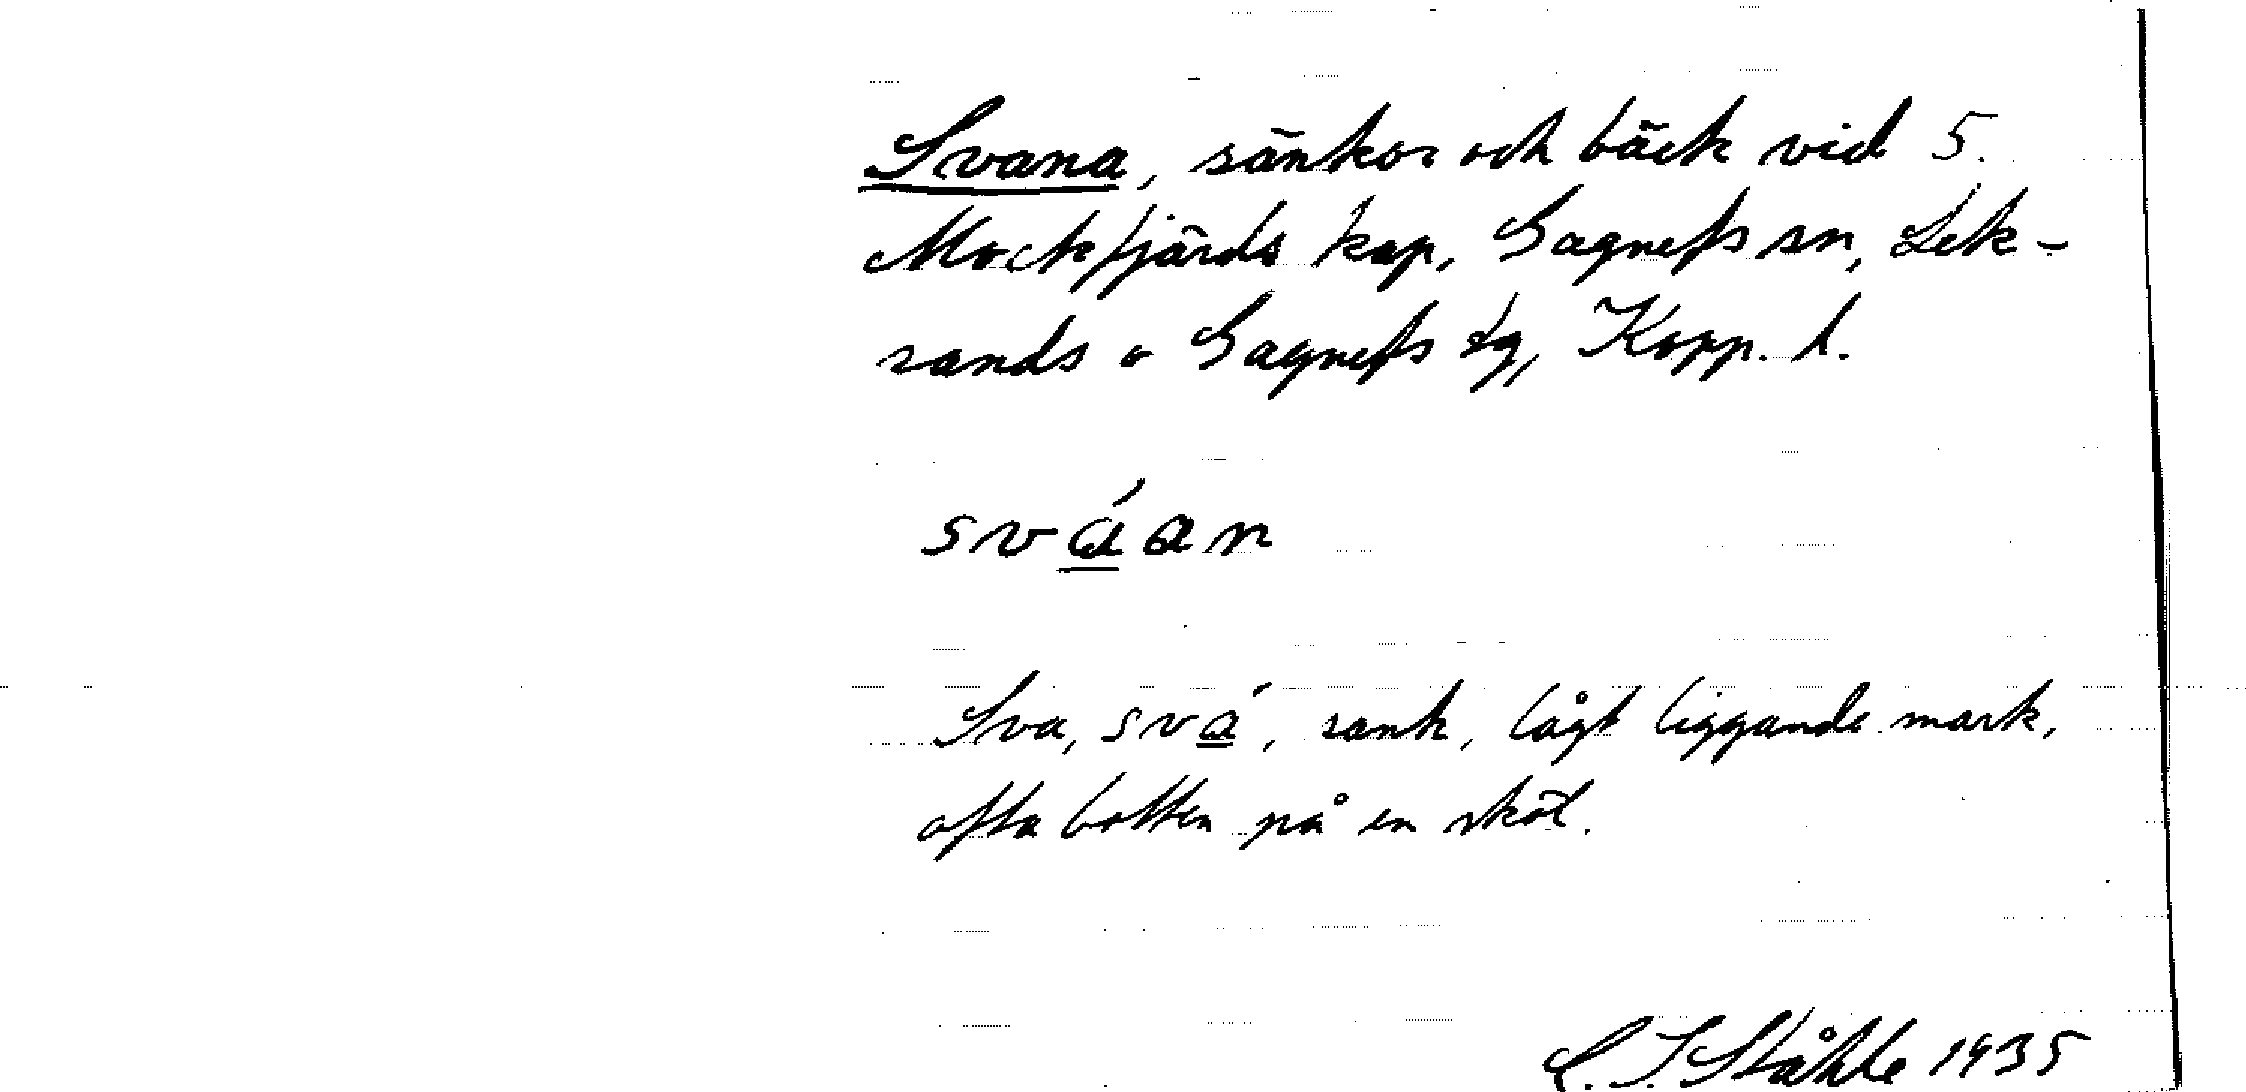 Svana, sänkor och bäck vid 5.
Mockfjärds kap, Gagnefs sn, Lek-
sands o Gagnefs tg, Kopp. l.
sváan
Sva, svá, sank, lågt liggande mark,
ofta botten på en sköl.
C. I. Ståhle 1935